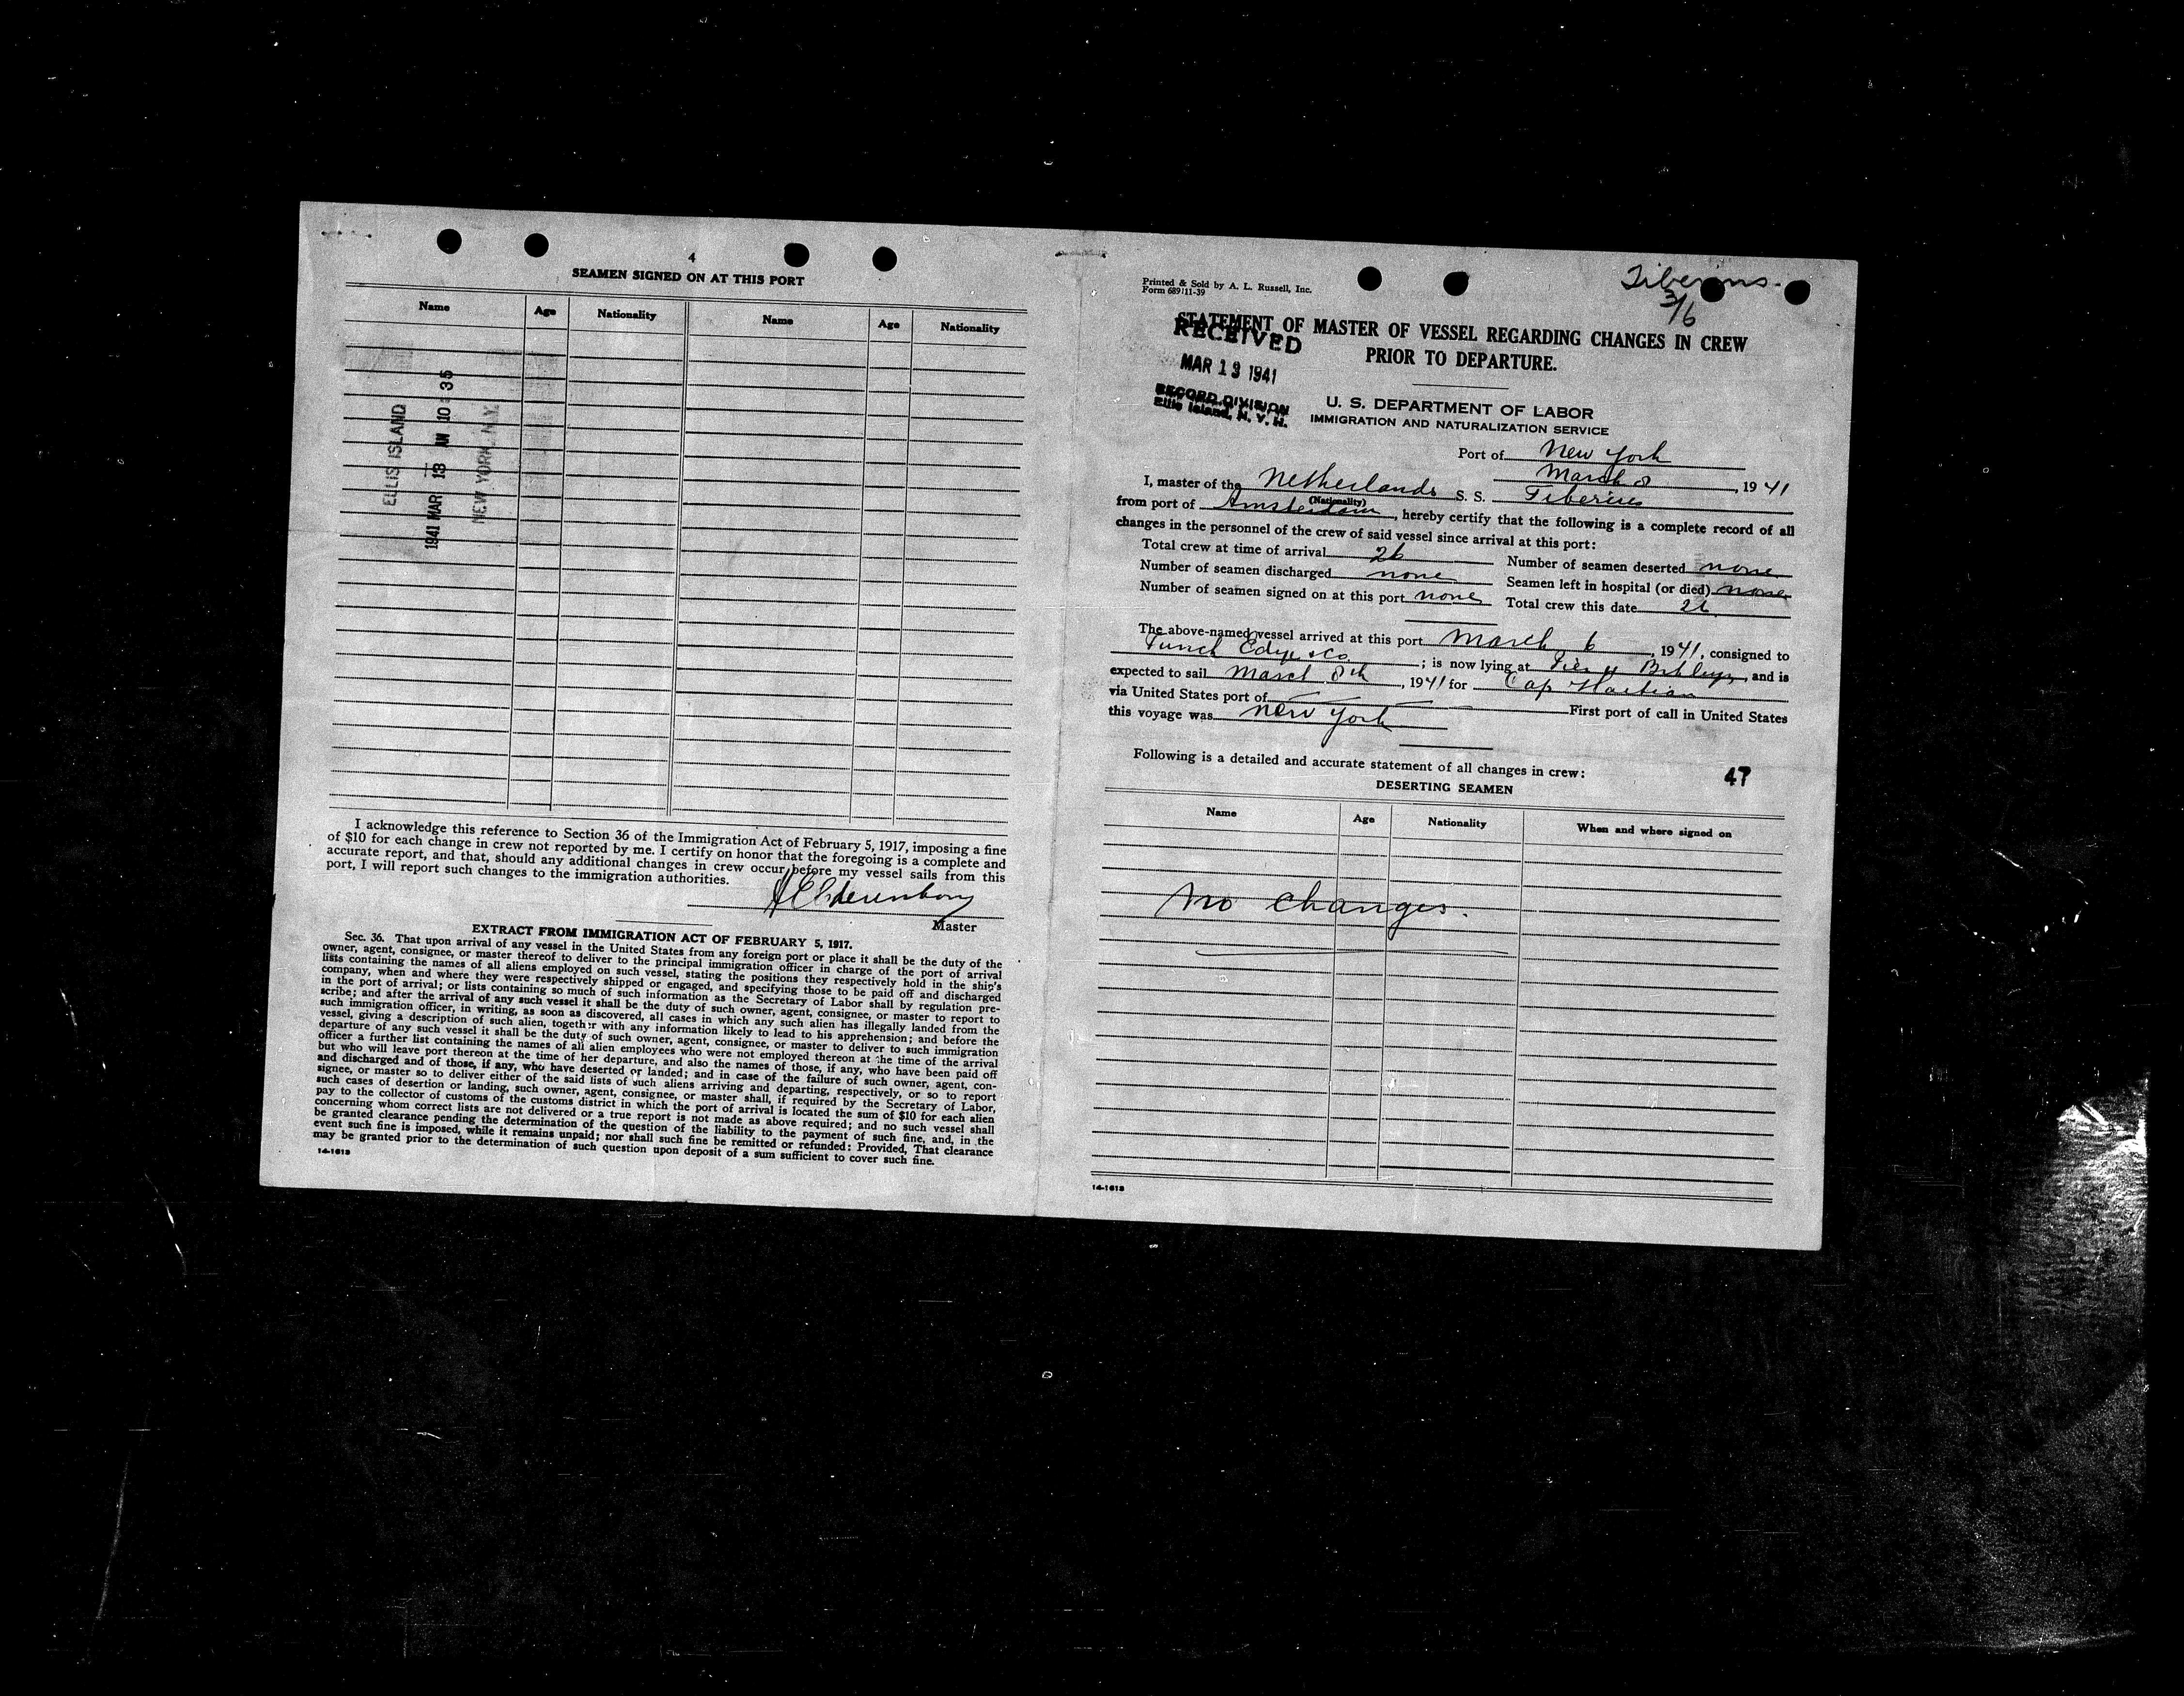 4
SEAMEN SIGNED ON AT THIS PORT
Name Age Nationality Name Age Nationality
ELLIS ISLAND
1941 MAR 13 AM 10 35
NEW YORK, N.Y.
I acknowledge this reference to Section 36 of the Immigration Act of February 5, 1917, imposing a fine
of $10 for each change in crew not reported by me. I certify on honor that the foregoing is a complete and
accurate report, and that, should any additional changes in crew occur before my vessel sails from this
port, I will report such changes to the immigration authorities.
Master
EXTRACT FROM IMMIGRATION ACT OF FEBRUARY 5, 1917.
Sec. 36. That upon arrival of any vessel in the United States from any foreign port or place it shall be the duty of the
owner, agent, consignee, or master thereof to deliver to the principal immigration officer in charge of the port of arrival
lists containing the names of all aliens employed on such vessel, stating the positions they respectively hold in the ship's
company, when and where they were respectively shipped or engaged, and specifying those to be paid off and discharged
in the port of arrival; or lists containing so much of such information as the Secretary of Labor shall by regulation pre-
scribe; and after the arrival of any such vessel it shall be the duty of such owner, agent, consignee, or master to report to
such immigration officer, in writing, as soon as discovered, all cases in which any such alien has illegally landed from the
vessel, giving a description of such alien, together with any information likely to lead to his apprehension; and before the
departure of any such vessel it shall be the duty of such owner, agent, consignee, or master to deliver to such immigration
officer a further list containing the names of all alien employees who were not employed thereon at the time of the arrival
but who will leave port thereon at the time of her departure, and also the names of those, if any, who have been paid off
and discharged and of those, if any, who have deserted or landed; and in case of the failure of such owner, agent, con-
signee, or master so to deliver either of the said lists of such aliens arriving and departing, respectively, or so to report
such cases of desertion or landing, such owner, agent, consignee, or master shall, if required by the Secretary of Labor,
pay to the collector of customs of the customs district in which the port of arrival is located the sum of $10 for each alien
concerning whom correct lists are not delivered or a true report is not made as above required; and no such vessel shall
be granted clearance pending the determination of the question of the liability to the payment of such fine, and, in the
event such fine is imposed, while it remains unpaid; nor shall such fine be remitted or refunded: Provided, That clearance
may be granted prior to the determination of such question upon deposit of a sum sufficient to cover such fine.
14-1613
Printed & Sold by A. L. Russell, Inc.
Form 689 11-39
Tiberius
3/6
STATEMENT OF MASTER OF VESSEL REGARDING CHANGES IN CREW
PRIOR TO DEPARTURE.
RECEIVED
MAR 13 1941
RECORD DIVISION
Ellis Island, N. Y. H.
U. S. DEPARTMENT OF LABOR
IMMIGRATION AND NATURALIZATION SERVICE
Port of New York
March 8, 1941
I, master of the Netherlands S. S. Tiberius
(Nationality)
from port of Amsterdam, hereby certify that the following is a complete record of all
changes in the personnel of the crew of said vessel since arrival at this port:
Total crew at time of arrival 26 Number of seamen deserted none
Number of seamen discharged none Seamen left in hospital (or died) none
Number of seamen signed on at this port none Total crew this date 26
The above-named vessel arrived at this port March 6, 1941, consigned to
Funch Edye & Co.; is now lying at Pier, and is
expected to sail March 8th, 1941 for Cap Haitian
via United States port of First port of call in United States
this voyage was New York
Following is a detailed and accurate statement of all changes in crew:
47
DESERTING SEAMEN
Name Age Nationality When and where signed on
No changes.
14-1613